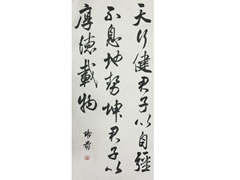 天行健君子以自强
不息地势坤君子以
厚德載物